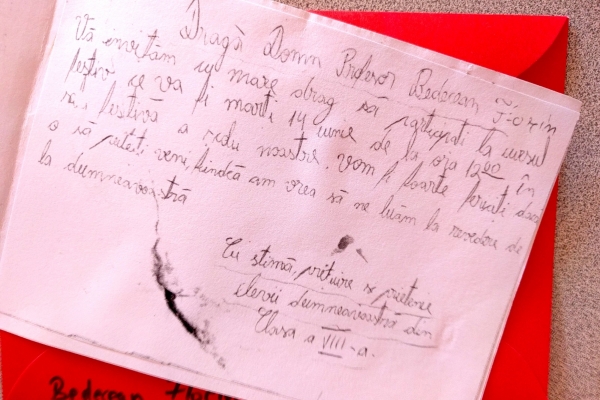 Dragă Domn Profesor Bederean Florin
Vă invităm cu mare drag să participați la cursul
festiv ce va fi marți 14 iunie de la ora 12⁰⁰ în
festivă a noastre. Vom fi foarte fericiți dacă
o să puteți veni, findcă am vrea să ne luăm la revedere de
la dumneavoastră
Cu stimă, și prietenie
elevii dumneavoastră din
Clasa a VIII-a.
Bederean